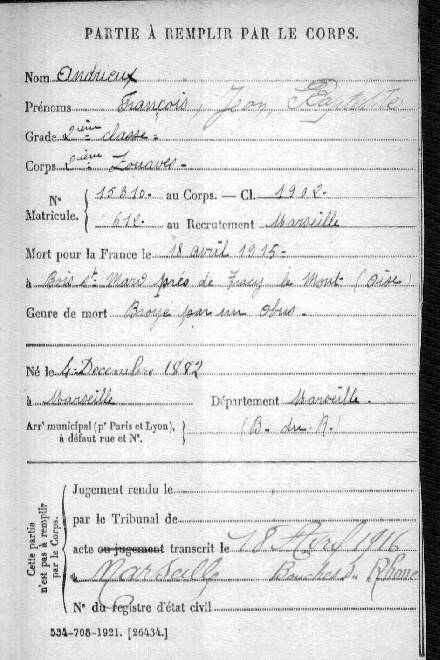 PARTIE À REMPLIR PAR LE CORPS.
Nom Andrieux
Prénoms François, Jean, Baptiste
Grade 2ième classe
Corps 2ième Zouaves
N° Matricule. 15310 au Corps. — Cl. 1902
612 au Recrutement Marseille
Mort pour la France le 18 avril 1915
à Bois St Mard près de Tracy le Mont (Oise)
Genre de mort Broyé par un obus
Né le 4 Decembre 1882
à Marseille Département Marseille
Arrt municipal (pr Paris et Lyon), à défaut rue et N°. (B. du R.)
Cette partie n'est pas à remplir par le Corps.
Jugement rendu le
par le Tribunal de
acte ou jugement transcrit le 18 Avril 1916
à Marseille Bouches d. Rhône
N° du registre d'état civil
534-708-1921. [26434.]